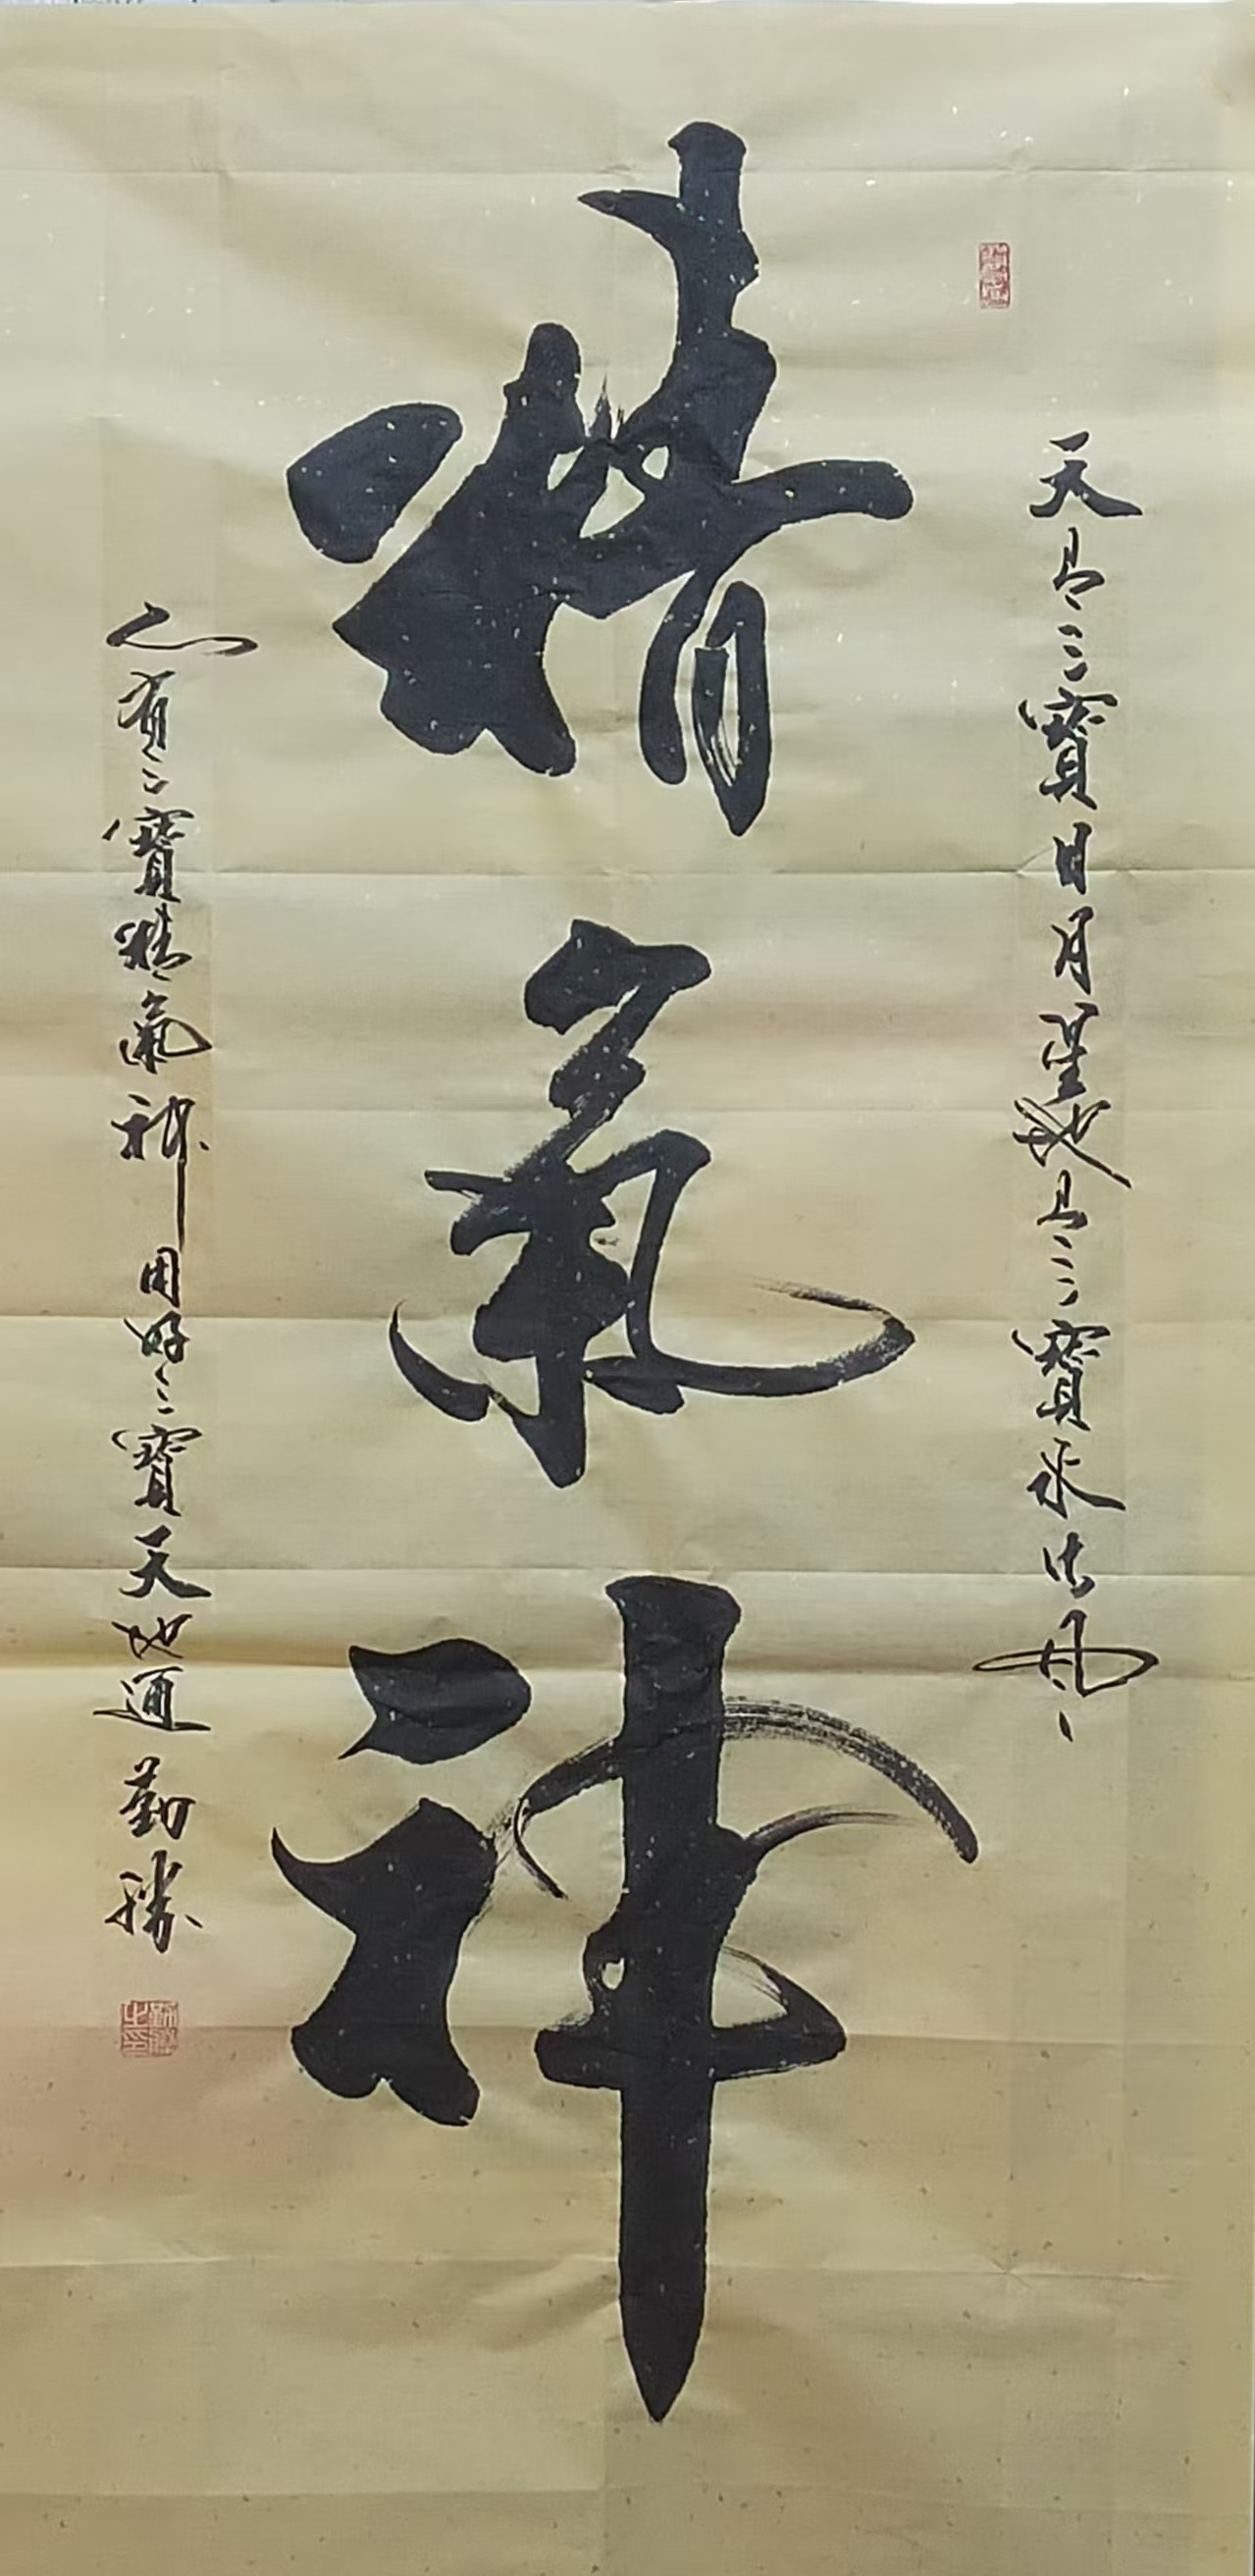 天有三寶日月星地有三寶水火風
精氣神
人有三寶精氣神用好三寶天地通 勤勝